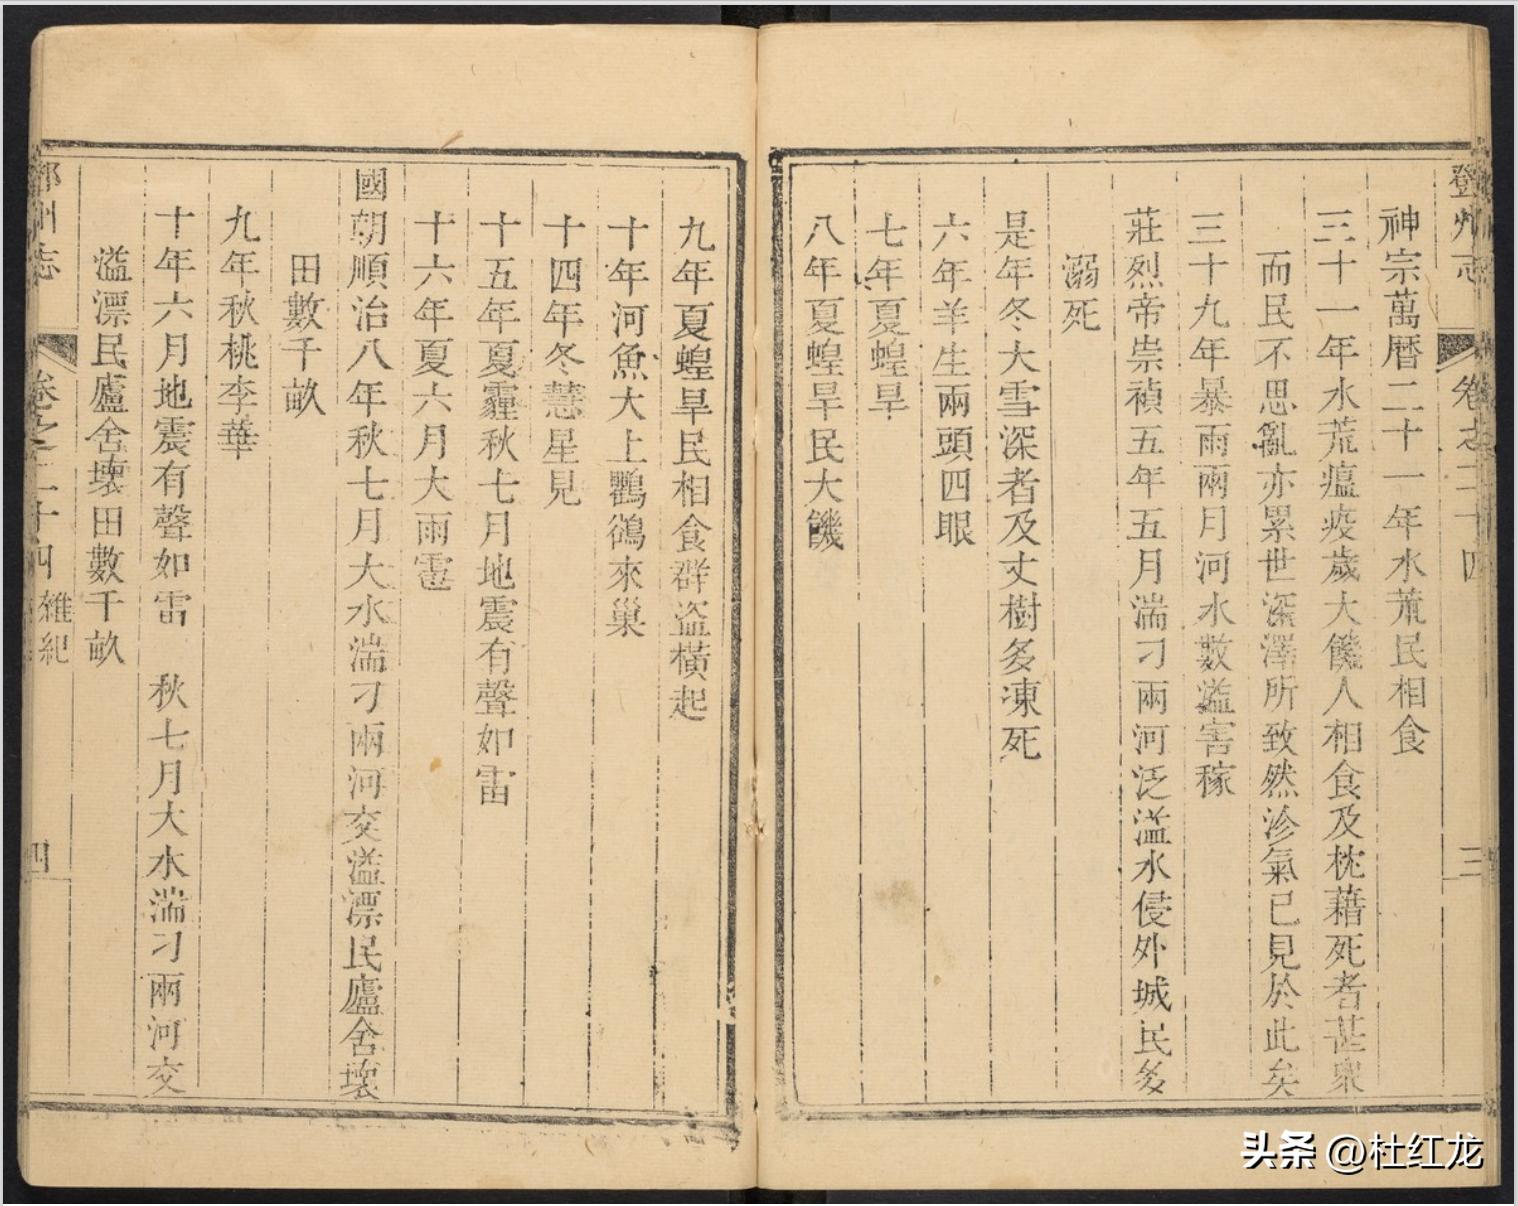 鄧州志 卷之二十四 三
神宗萬曆二十一年水荒民相食
三十一年水荒瘟疫歲大饑人相食及枕藉死者甚衆
而民不思亂亦累世深澤所致然沴氣已見於此矣
三十九年暴雨兩月河水數溢害稼
莊烈帝崇禎五年五月湍刁兩河泛溢水侵外城民多
溺死
是年冬大雪深者及丈樹多凍死
六年羊生兩頭四眼
七年夏蝗旱
八年夏蝗旱民大饑
九年夏蝗旱民相食群盜橫起
十年河魚大上鸜鵒來巢
十四年冬慧星見
十五年夏霾秋七月地震有聲如雷
十六年夏六月大雨雹
國朝順治八年秋七月大水湍刁兩河交溢漂民廬舍壞
田數千畝
九年秋桃李華
十年六月地震有聲如雷 秋七月大水湍刁兩河交
溢漂民廬舍壞田數千畝
鄧州志 卷之二十四 雜紀 四
头条 @杜红龙